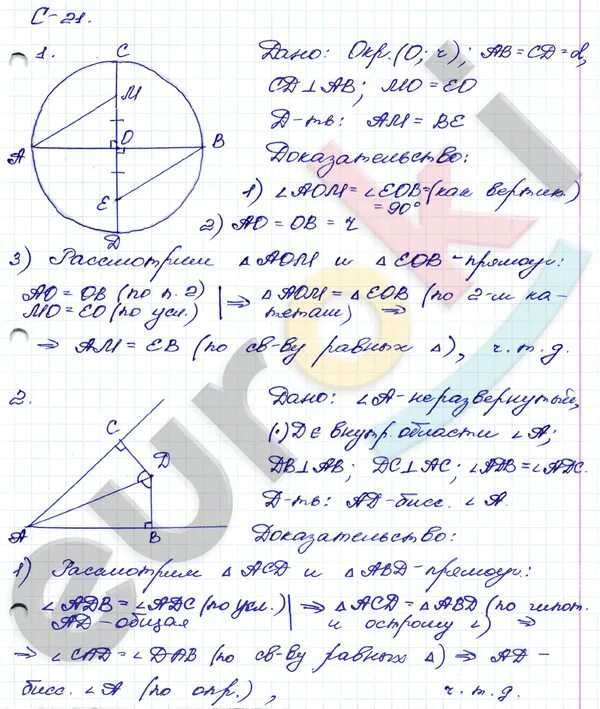 С-21.
1.
Дано: Окр.(О; r); AB = CD = d,
CD ⊥ AB; MO = EO
Д-ть: AM = BE
Доказательство:
1) ∠AOM = ∠EOB = (как вертик.)
= 90°
2) AO = OB = r
C
M
O
A
B
E
D
3) Рассмотрим △AOM и △EOB - прямоуг.:
AO = OB (по п. 2) | ⇒ △AOM = △EOB (по 2-м ка-
MO = EO (по усл.) | тетам) ⇒
⇒ AM = EB (по св-ву равных △), ч.т.д.
2.
Дано: ∠A - неразвернутый,
(·) D ∈ внутр. области ∠A;
DB ⊥ AB; DC ⊥ AC; ∠ADB = ∠ADC.
Д-ть: AD - бисс. ∠A.
Доказательство:
C
D
A
B
1) Рассмотрим △ACD и △ABD - прямоуг.:
∠ADB = ∠ADC (по усл.) | ⇒ △ACD = △ABD (по гипот.
AD - общая | и острому ∠) ⇒
⇒ ∠CAD = ∠DAB (по св-ву равных △) ⇒ AD -
бисс. ∠A (по опр.), ч.т.д.
euroki